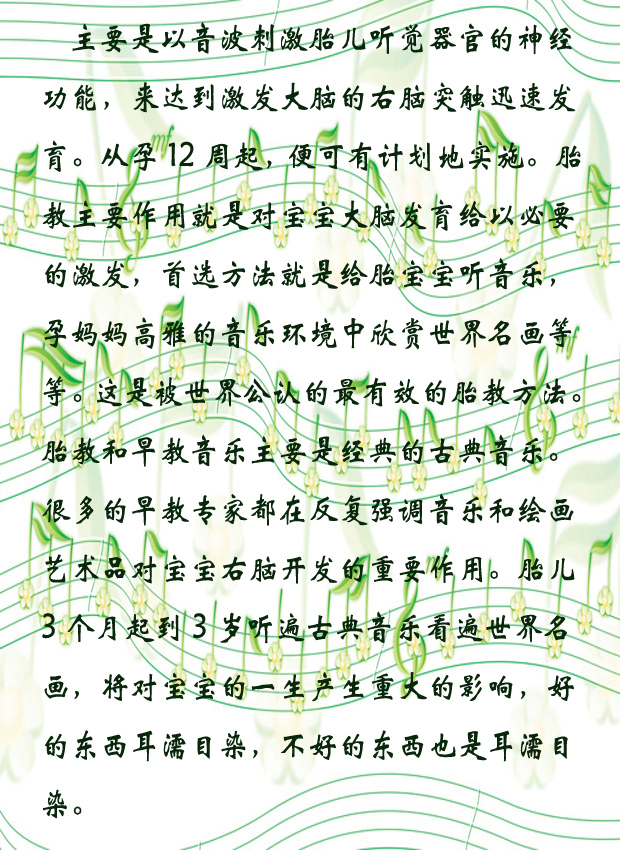 主要是以音波刺激胎儿听觉器官的神经
功能，来达到激发大脑的右脑突触迅速发
育。从孕 12 周起，便可有计划地实施。胎
教主要作用就是对宝宝大脑发育给以必要
的激发，首选方法就是给胎宝宝听音乐，
孕妈妈高雅的音乐环境中欣赏世界名画等
等。这是被世界公认的最有效的胎教方法。
胎教和早教音乐主要是经典的古典音乐。
很多的早教专家都在反复强调音乐和绘画
艺术品对宝宝右脑开发的重要作用。胎儿
3 个月起到 3 岁听遍古典音乐看遍世界名
画，将对宝宝的一生产生重大的影响，好
的东西耳濡目染，不好的东西也是耳濡目
染。
mf
mf
mf